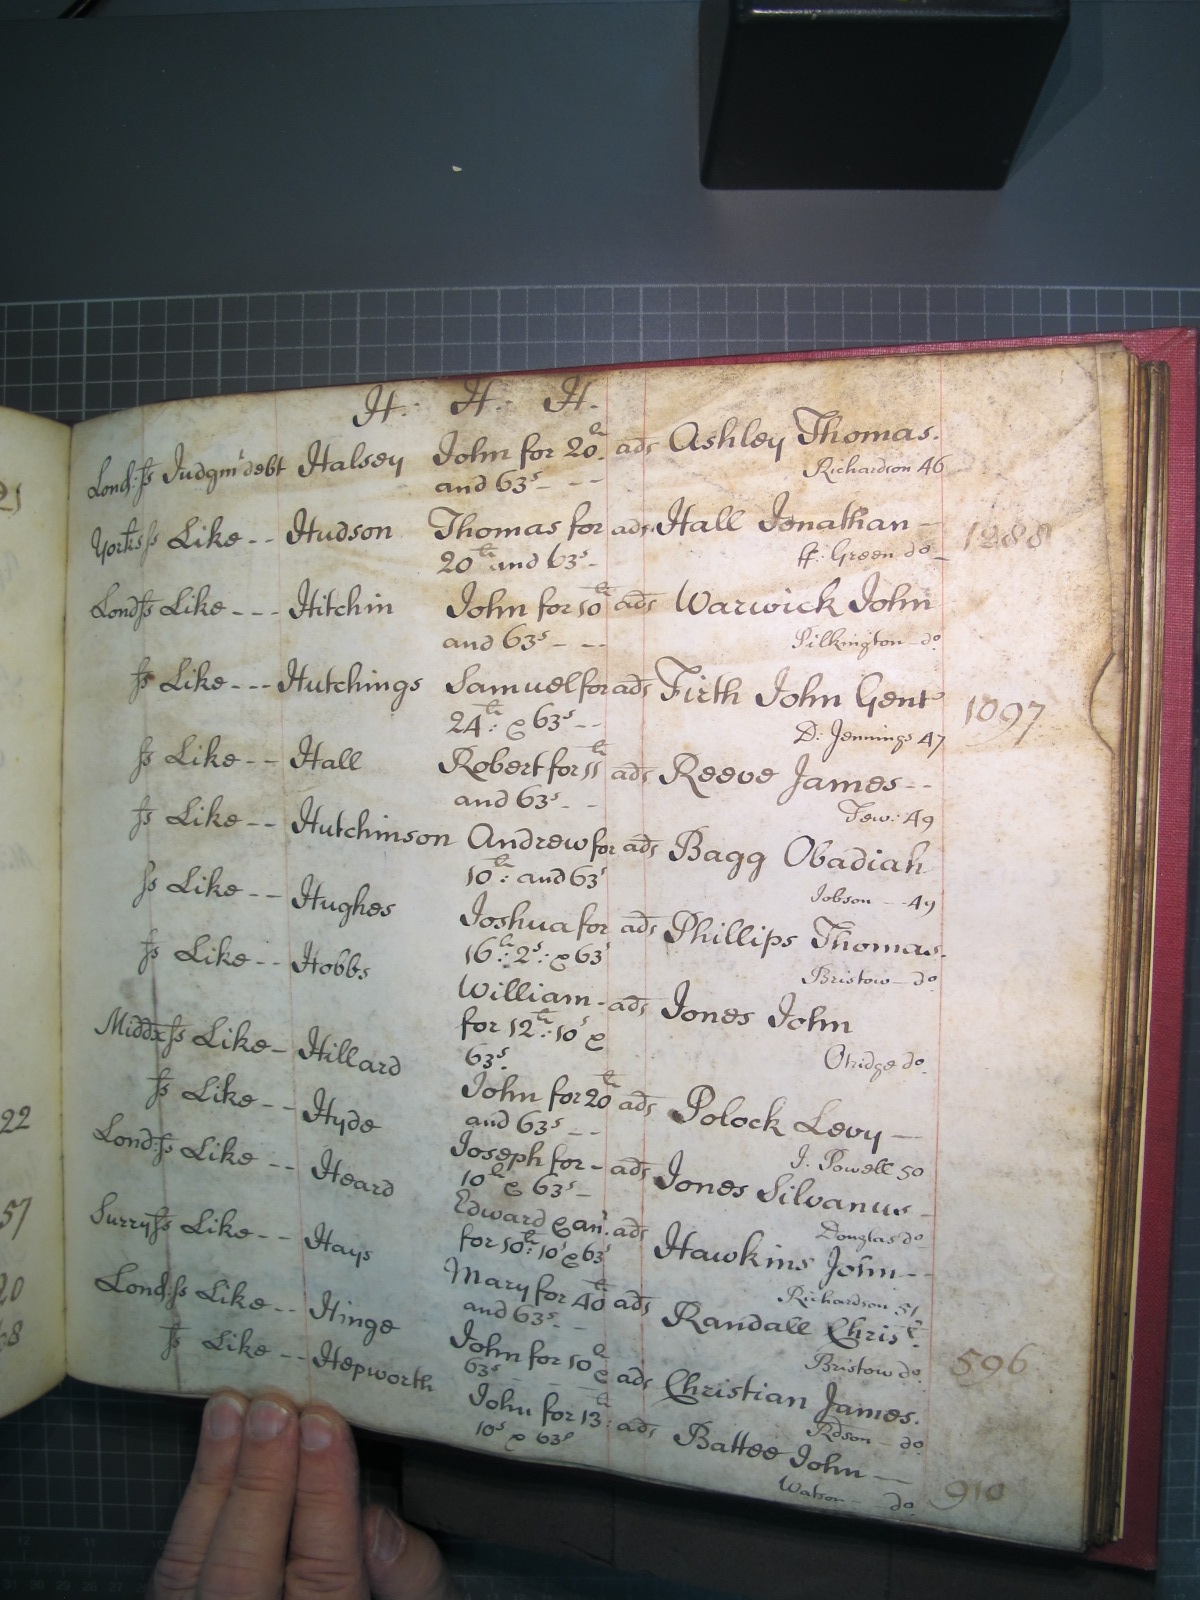 H. H. H.
Lond: ss Judgmt debt Halsey John for 20li. ads Ashley Thomas.
and 63s - - - Richardson 46
Yorks ss Like - - Hudson Thomas for ads Hall Jonathan - 1288
20li and 63s - ff: Green do -
Lond ss Like - - - Hitchin John for 50li ads Warwick John
and 63s - - - Pilkington - do
ss Like - - - Hutchings Samuel for ads Firth John Gent 1097
24li: & 63s - - D: Jennings 47
ss Like - - Hall Robert for 55li ads Reeve James - -
and 63s - - Few: 49
ss Like - - Hutchinson Andrew for ads Bagg Obadiah
10li: and 63s Jobson - - 49
ss Like - - Hughes Joshua for ads Phillips Thomas.
16li: 2s: & 63s Bristow - do
ss Like - - Hobbs William - ads Jones John
for 12li: 10s & Otridge do
63s.
Middx ss Like - Hillard John for 20li ads Polock Levy -
and 63s - - J. Powell 50
ss Like - - Hyde Joseph for - ads Jones Silvanus -
10li & 63s - Douglas do
Lond: ss Like - - Heard Edward & an. ads Hawkins John - -
for 50li: 10s & 63s Richardson 51
Surry ss Like - - Hays Mary for 40li ads Randall Christ.
and 63s - - Bristow do 596
Lond: ss Like - - Hinge John for 50li & ads Christian James.
63s - - - Rdson - do
ss Like - - Hepworth John for 13li: ads Battee John -
10s & 63s Watson - do 910
22
57
20